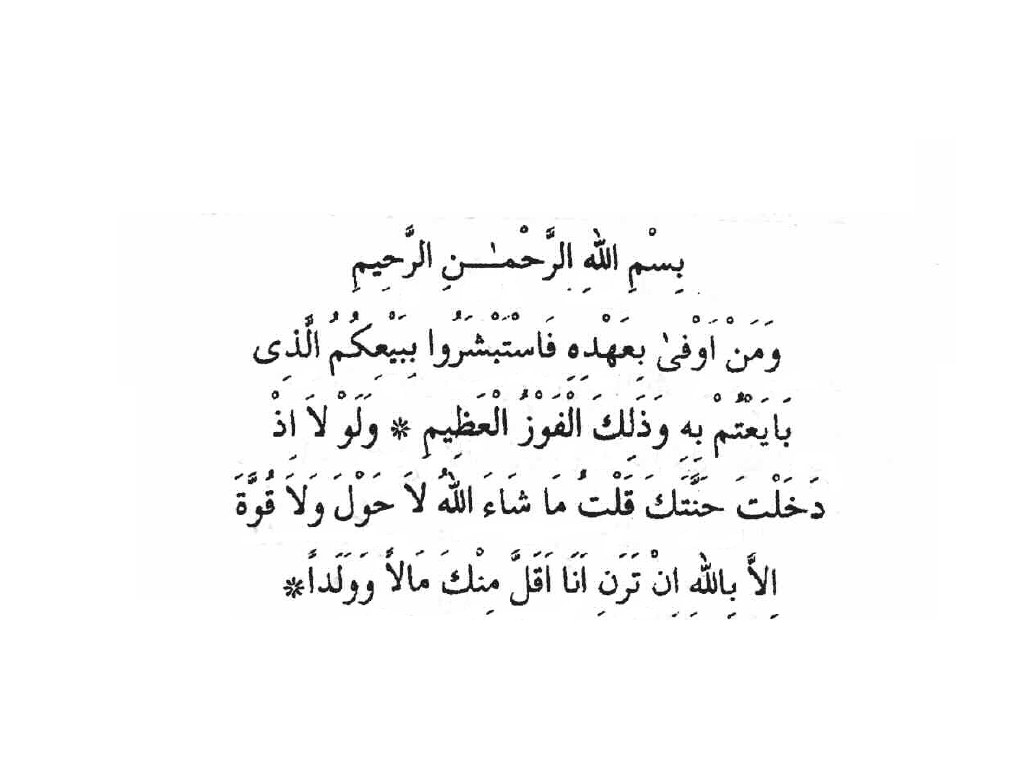 بِسْمِ اللهِ الرَّحْمٰـــنِ الرَّحِيمِ
وَمَنْ اَوْفىٰ بِعَهْدِهِ فَاسْتَبْشَرُوا بِبَيْعِكُمُ الَّذِى
بَايَعْتُمْ بِهِ وَذَلِكَ الْفَوْزُ الْعَظِيمِ * وَلَوْ لاَ اِذْ
دَخَلْتَ حَنَّتَكَ قَلْتُ مَا شَاءَ اللهُ لاَ حَوْلَ وَلاَ قُوَّةَ
اِلاَّ بِاللهِ اِنْ تَرَنِ اَنَا اَقَلَّ مِنْكَ مَالاً وَوَلَداً*